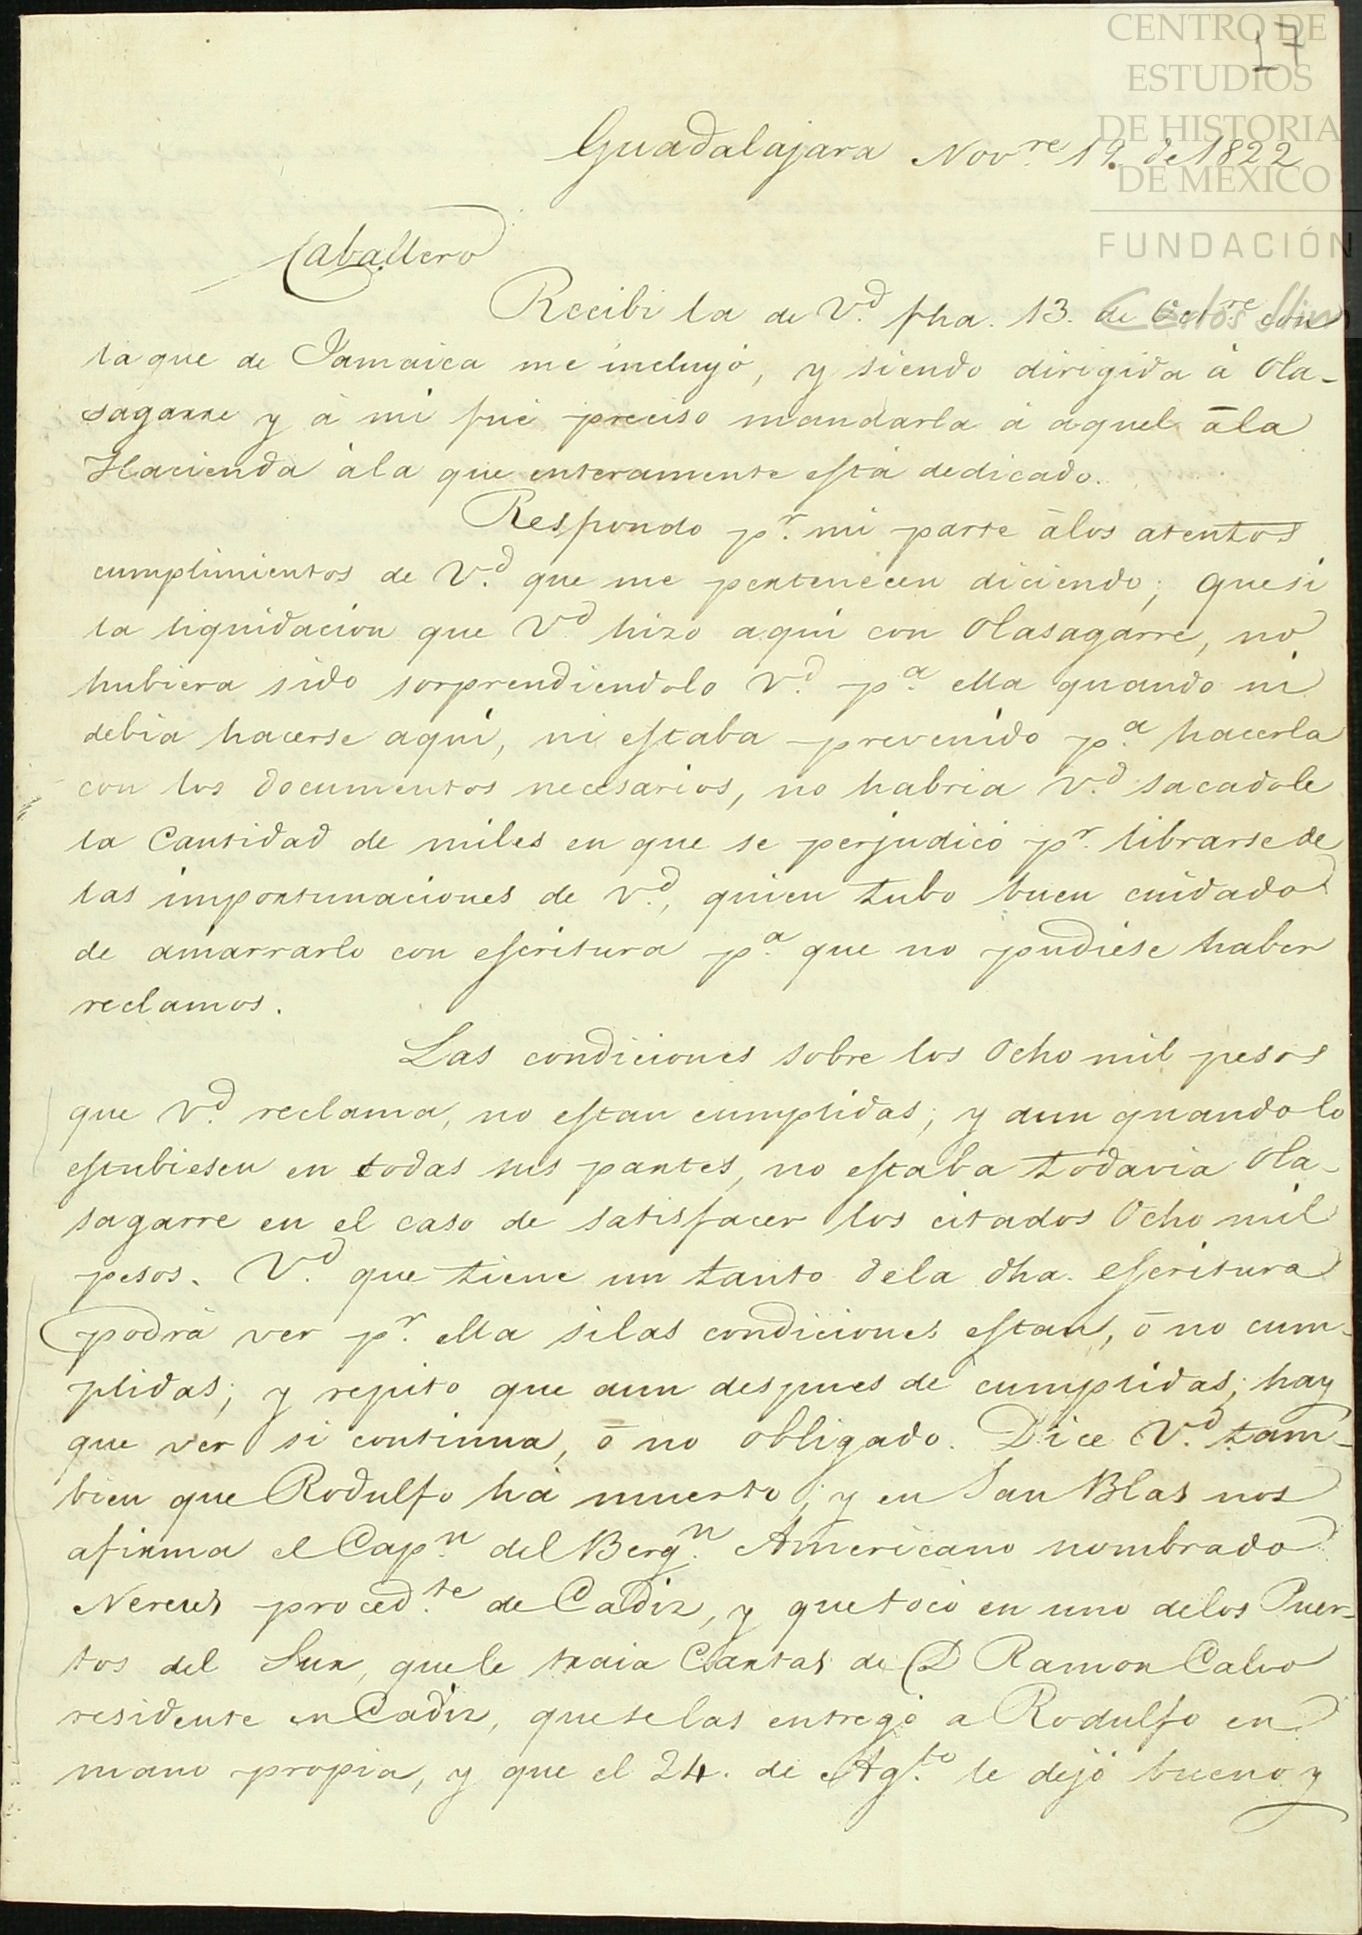 CENTRO DE
ESTUDIOS
DE HISTORIA
DE MÉXICO
FUNDACIÓN
Carlos Slim
17
Guadalajara Nov.re 19. de 1822
Caballero
Recibi la de V.d fha. 13. de Oct.re con
la que de Jamaica me incluyó, y siendo dirigida á Ola-
sagarre y á mi fué preciso mandarla á aquel á la
Hacienda á la que enteramente está dedicado.
Respondo p.r mi parte á los atentos
cumplimientos de V.d que me pertenecen diciendo; que si
la liquidacion que V.d hizo aqui con Olasagarre, no
hubiera sido sorprendiendolo V.d p.a ella quando ni
debia hacerse aquí, ni estaba prevenido p.a hacerla
con los documentos necesarios, no habria V.d sacadole
la Cantidad de miles en que se perjudicó p.r librarse de
las importunaciones de V.d, quien tubo buen cuidado
de amarrarlo con escritura p.a que no pudiese haber
reclamos.
Las condiciones sobre los Ocho mil pesos
que V.d reclama, no estan cumplidas; y aun quando lo
estubiesen en todas sus partes, no estaba todavia Ola-
sagarre en el caso de satisfacer los citados Ocho mil
pesos. V.d que tiene un tanto de la dha. escritura
podrá ver p.r ella si las condiciones estan, ó no cum-
plidas; y repito que aun despues de cumplidas; hay
que ver si continua, ó no obligado. Dice V.d tam-
bien que Rodulfo há muerto; y en San Blas nos
afirma el Cap.n del Berg.n Americano nombrado
Nereus proced.te de Cadiz, y que tocó en uno de los Puer-
tos del Sur, que le traia Cartas de D Ramon Calvo
residente en Cadiz, que se las entregó a Rodulfo en
mano propia, y que el 24. de Ag.to le dejó bueno y